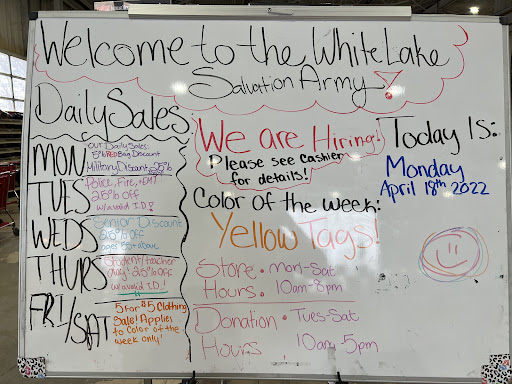 Welcome to the White Lake
Salvation Army!
Daily Sales
MON
our Daily Sales:
5% RED Bag Discount
Military Discount 25%
TUES
Police, Fire, + EMT
25% off
w/ valid ID!
WEDS
Senior Discount
25% off
ages 55 + above
THURS
Student/teacher
day! 25% off
w/ valid ID!
FRI/SAT
5 for $5 Clothing
Sale! Applies
to Color of the
week only!
We are Hiring!
Please see cashier
for details!
Color of the week:
Yellow Tags!
Store • Mon-Sat
Hours • 10am-8pm
Donation • Tues-Sat
Hours 10am-5pm
Today Is:
Monday
April 18th 2022